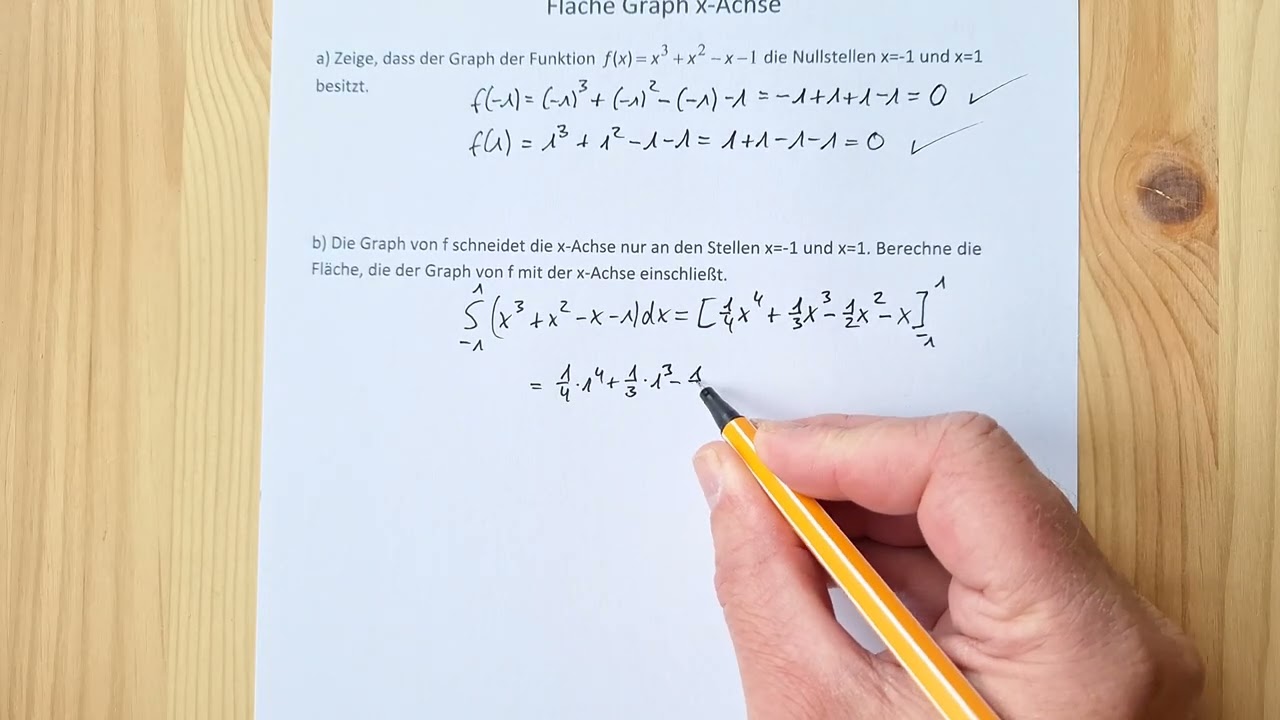 Fläche Graph x-Achse
a) Zeige, dass der Graph der Funktion f(x) = x³ + x² − x − 1 die Nullstellen x=-1 und x=1
besitzt.
f(-1) = (-1)³ + (-1)² - (-1) - 1 = -1+1+1-1 = 0 ✓
f(1) = 1³ + 1² - 1 - 1 = 1+1-1-1 = 0 ✓
b) Die Graph von f schneidet die x-Achse nur an den Stellen x=-1 und x=1. Berechne die
Fläche, die der Graph von f mit der x-Achse einschließt.
∫₋₁¹ (x³ + x² - x - 1) dx = [1/4 x⁴ + 1/3 x³ - 1/2 x² - x]₋₁¹
= 1/4 · 1⁴ + 1/3 · 1³ - 1